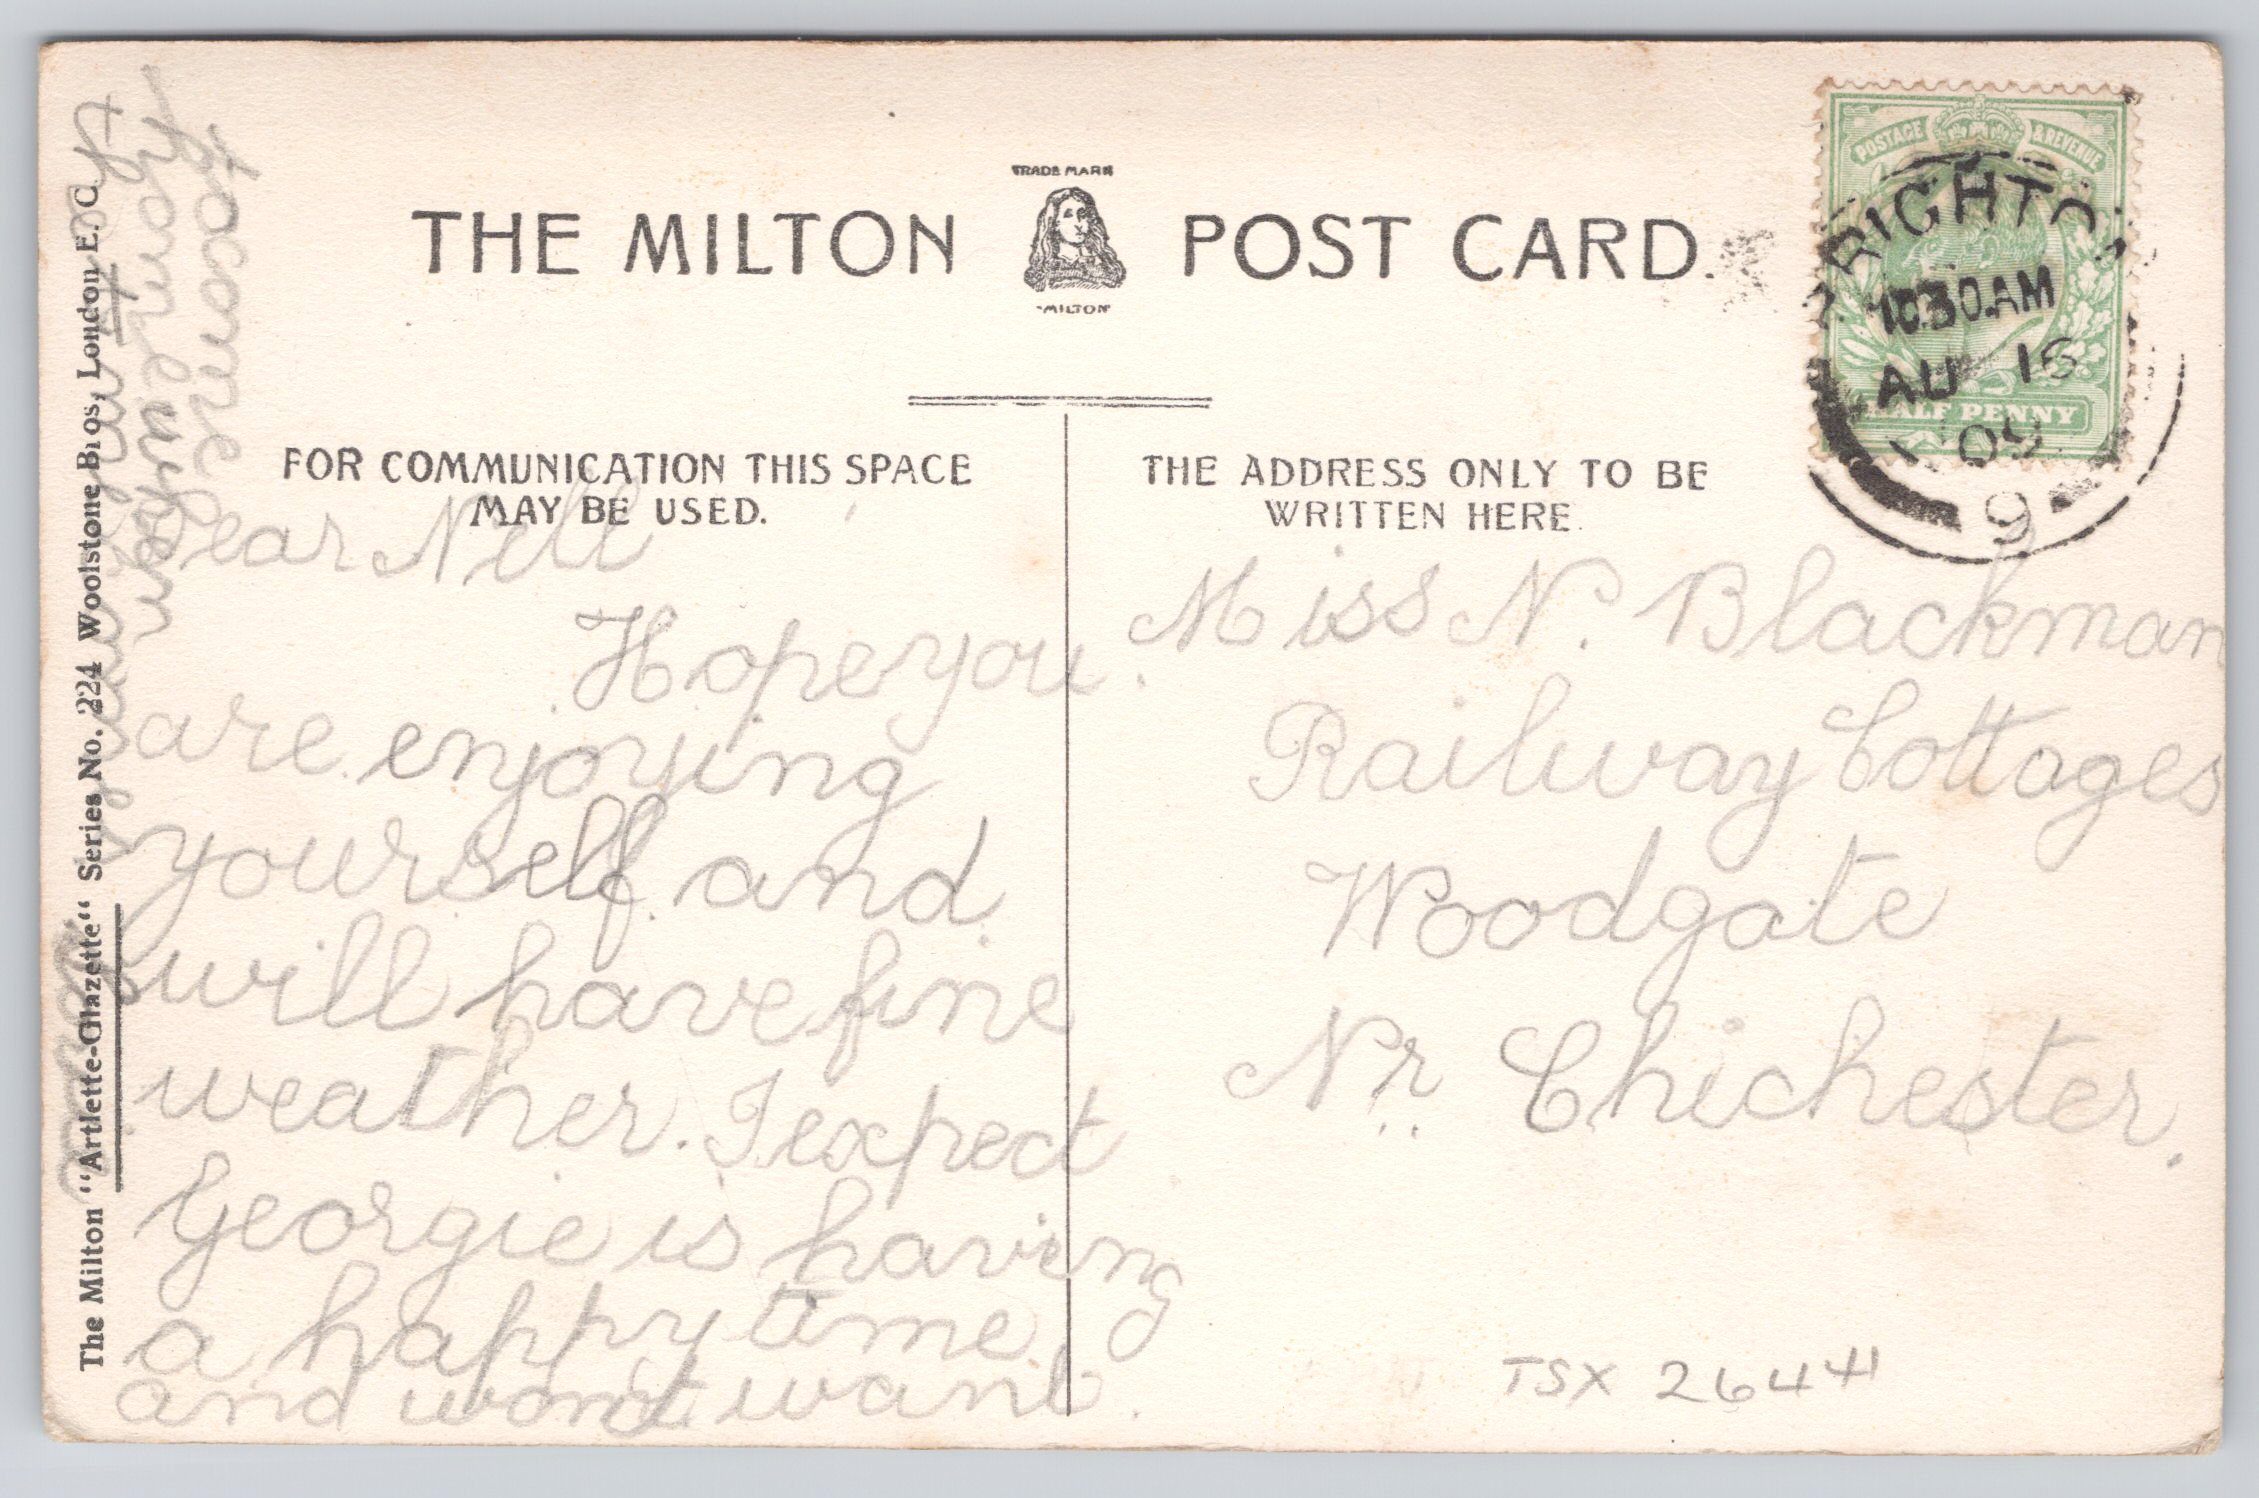 TRADE MARK
THE MILTON POST CARD.
"MILTON"
POSTAGE & REVENUE
HALF PENNY
BRIGHTON
10.30 AM
AU 16
09
9
FOR COMMUNICATION THIS SPACE
MAY BE USED.
THE ADDRESS ONLY TO BE
WRITTEN HERE.
Dear Nell
Hope you
are enjoying
yourself and
will have fine
weather. I expect
Georgie is having
a happy time
and wont want
to come
home
Miss N. Blackman
Railway Cottages
Woodgate
Nr Chichester.
TSX 2644
The Milton "Artlette-Glazette" Series No. 224 Woolstone Bros, London E. C.